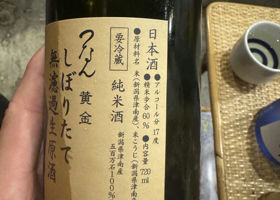 日本酒
●アルコール分 17度
●精米歩合60% ●内容量 720ml
●原材料名 米(新潟県津南産)、米こうじ(新潟県津南産)
新潟県津南産
五百万石100%
純米酒
要冷蔵
つなん
黄金
しぼりたて
無濾過生原酒